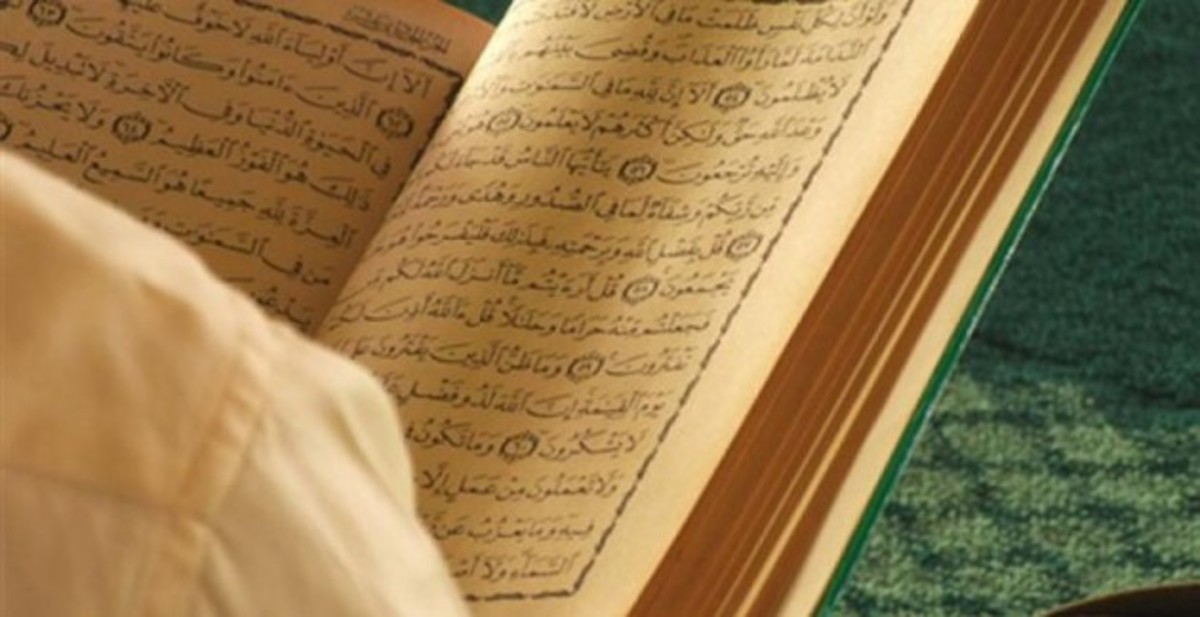 وَلَوْ أَنَّ لِكُلِّ نَفْسٍ ظَلَمَتْ مَا فِي ٱلْأَرْضِ لَٱفْتَدَتْ
ٱلنَّدَامَةَ لَمَّا رَأَوُا۟ ٱلْعَذَابَ وَقُضِيَ بَيْنَهُم
لَا يُظْلَمُونَ ٥٤ أَلَآ إِنَّ لِلَّهِ مَا فِي ٱلسَّمَٰوَٰتِ
وَعْدَ ٱللَّهِ حَقٌّ وَلَٰكِنَّ أَكْثَرَهُمْ لَا يَعْلَمُونَ ٥٥ هُوَ
وَإِلَيْهِ تُرْجَعُونَ ٥٦ يَٰٓأَيُّهَا ٱلنَّاسُ قَدْ جَآءَ
مِّن رَّبِّكُمْ وَشِفَآءٌ لِّمَا فِي ٱلصُّدُورِ وَهُدًى وَرَحْمَةٌ
٥٧ قُلْ بِفَضْلِ ٱللَّهِ وَبِرَحْمَتِهِۦ فَبِذَٰلِكَ فَلْيَفْرَحُوا۟ هُوَ
يَجْمَعُونَ ٥٨ قُلْ أَرَءَيْتُم مَّآ أَنزَلَ ٱللَّهُ لَكُم
فَجَعَلْتُم مِّنْهُ حَرَامًا وَحَلَٰلًا قُلْ ءَآللَّهُ أَذِنَ لَكُمْ
تَفْتَرُونَ ٥٩ وَمَا ظَنُّ ٱلَّذِينَ يَفْتَرُونَ عَلَى
يَوْمَ ٱلْقِيَٰمَةِ إِنَّ ٱللَّهَ لَذُو فَضْلٍ
لَا يَشْكُرُونَ ٦٠ وَمَا تَكُونُ
وَلَا تَعْمَلُونَ مِنْ عَمَلٍ إِلَّا
فِيهِ وَمَا يَعْزُبُ عَن
ٱلسَّمَآءِ وَلَآ
أَلَآ إِنَّ أَوْلِيَآءَ ٱللَّهِ لَا خَوْفٌ عَلَيْهِمْ
٦٢ ٱلَّذِينَ ءَامَنُوا۟ وَكَانُوا۟ يَتَّقُونَ ٦٣
فِي ٱلْحَيَوٰةِ ٱلدُّنْيَا وَفِي ٱلْأَخِرَةِ لَا تَبْدِيلَ
ذَٰلِكَ هُوَ ٱلْفَوْزُ ٱلْعَظِيمُ ٦٤ وَلَا يَحْزُنكَ
ٱلْعِزَّةَ لِلَّهِ جَمِيعًا هُوَ ٱلسَّمِيعُ ٱلْعَلِيمُ
مَن فِي ٱلسَّمَٰوَٰتِ